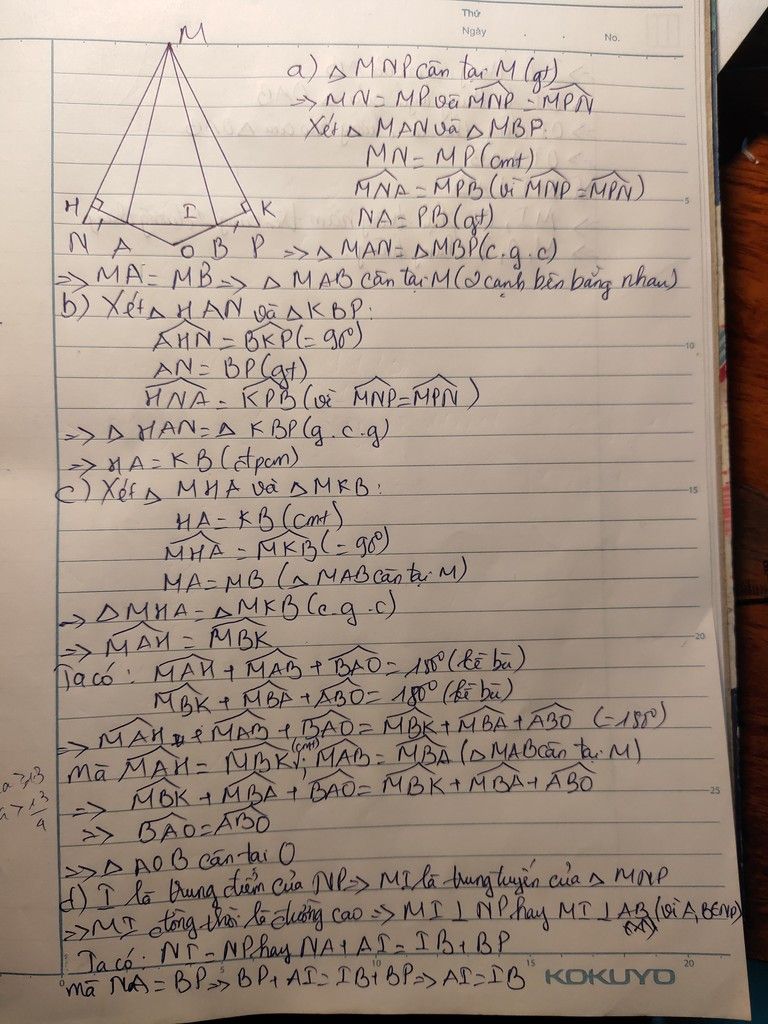 Thứ
Ngày . . No.
M
a) △ MNP cân tại M (gt)
=> MN = MP và MNP = MPN
Xét △ MAN và △ MBP:
MN = MP (cmt)
MNA = MPB (vì MNP = MPN)
NA = PB (gt)
H I K
N A O B P => △ MAN = △ MBP (c.g.c)
=> MA = MB => △ MAB cân tại M (2 cạnh bên bằng nhau)
b) Xét △ HAN và △ KBP:
AHN = BKP (= 90°)
AN = BP (gt)
HNA = KPB (vì MNP = MPN)
=> △ HAN = △ KBP (g.c.g)
=> HA = KB (đtpcm)
c) Xét △ MHA và △ MKB:
HA = KB (cmt)
MHA = MKB (= 90°)
MA = MB (△ MAB cân tại M)
=> △ MHA = △ MKB (c.g.c)
=> MAH = MBK
Ta có: MAH + MAB + BAO = 180° (kề bù)
MBK + MBA + ABO = 180° (kề bù)
=> MAH + MAB + BAO = MBK + MBA + ABO (=180°)
mà MAH = MBK (cmt); MAB = MBA (△ MAB cân tại M)
=> MBK + MBA + BAO = MBK + MBA + ABO
=> BAO = ABO
=> △ AOB cân tại O
d) I là trung điểm của NP => MI là trung tuyến của △ MNP
=> MI đồng thời là đường cao => MI ⊥ NP hay MI ⊥ AB (vì A, B ∈ NP)
(1)
Ta có: NI = NP hay NA + AI = IB + BP
mà NA = BP => BP + AI = IB + BP => AI = IB
KOKUYO
5
10
15
20
25
0
10
15
20
13
13
4